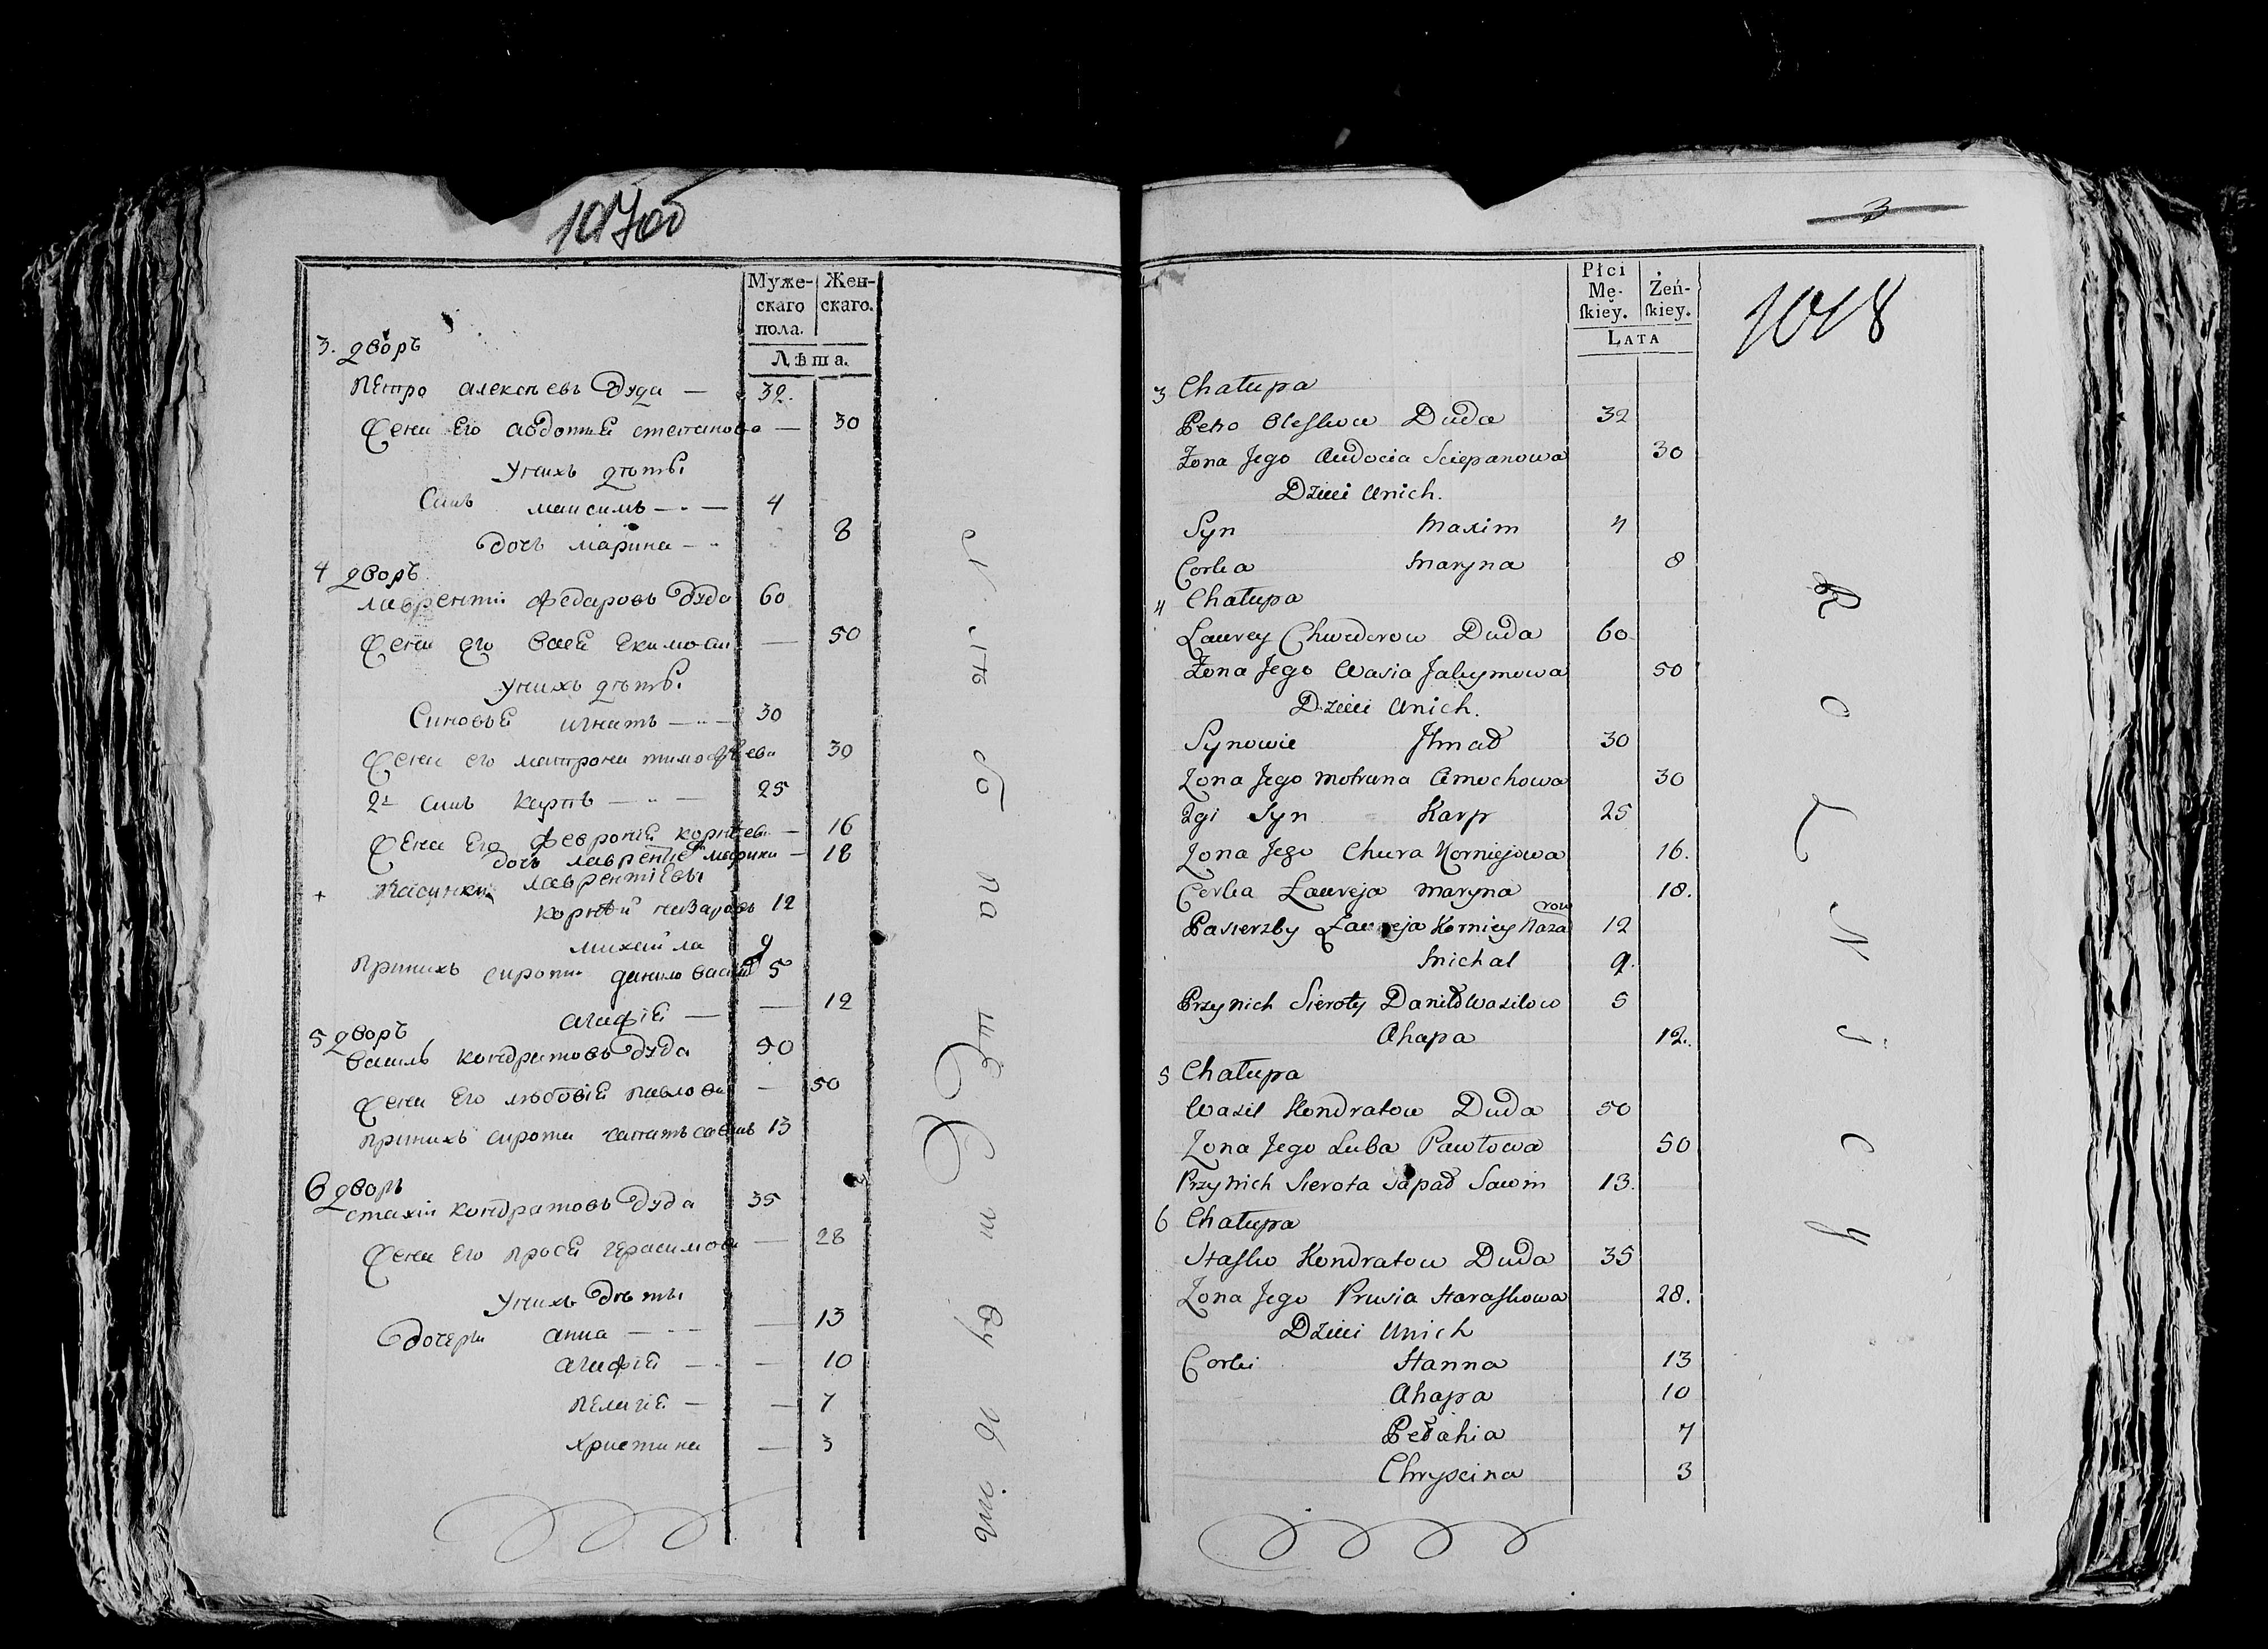 Муже-
скаго
пола.
Жен-
скаго.
Лѣта.
3. дворъ
Петро алексѣевъ Дуда — 32.
Жена его авдотиѣ степанова — 30
Унихъ дѣти
Синъ максимъ — 4
Дочь марина — 8
4 дворъ
лаврентий федаровъ Дуда 60
Жена его васѣ екимова — 50
Унихъ дѣти
Синовьѣ игнатъ — 30
Жена его матрона тимофѣева 30
2й синъ карпъ — 25
Жена его феврониѣ корнѣева — 16
дочь лаврентиѣ марина — 18
+ Пасинки лаврентиевы
корнѣй назаровъ 12
михайла 9
Принихъ сироти данило васил 5
агафиѣ — 12
5 дворъ
василь кондратовъ Дуда 50
Жена его любовиѣ павлова — 50
Принихъ сирота сапатъ савинъ 13
6 дворъ
стахий кондратовъ Дуда 35
Жена его просѣ герасимова — 28
Унихъ дѣти
Дочери анна — 13
агафиѣ — 10
пелагиѣ — 7
христина — 3
Płci
Mę-
ſkiey.
Żeń-
ſkiey.
LATA
3
1018
3 Chałupa
Petro Oleſkow Duda 32
Zona Jego Audocia Sciepanowa 30
Dzieci Unich.
Syn Maxim 4
Corka Maryna 8
4 Chałupa
Laurey Chwedorow Duda 60
Zona Jego Wasia Jakymowa 50
Dzieci Unich.
Synowie Jhnad 30
Zona Jego Motruna Cimochowa 30
2gi Syn Karp 25
Zona Jego Chwra Korniejowa 16.
Corka Laureja Maryna 18.
Pasierzby Laureja Korniey Naza row 12
Michal 9.
Przy nich Sieroty Daniło Wasilow 5
Ahapa 12.
5 Chałupa
Wasil Kondratow Duda 50
Zona Jego Luba Pawłowa 50
Przy nich Sierota Sapad Sawin 13.
6 Chałupa
Staſko Kondratow Duda 35
Zona Jego Prusia Haraſkowa 28.
Dzieci Unich
Corki Hanna 13
Ahapa 10
Pełahia 7
Chryscina 3
R O L N I C Y